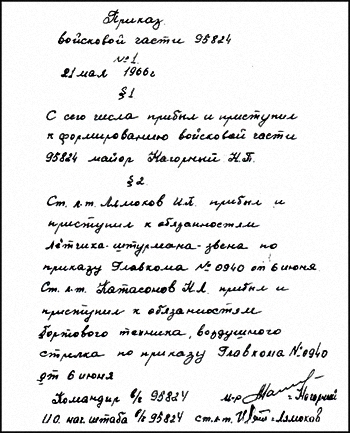 Приказ
войсковой части 95824
№ 1
21 мая 1966г
§ 1
С сего числа прибыл и приступил
к формированию войсковой части
95824 майор Нагорный Н.П.
§ 2
Ст. л-т. Лямоков И.Л. прибыл и
приступил к обязанностям
лётчика-штурмана-звена по
приказу Главкома № 0940 от 6 июня
Ст. л-т. Катасонов Н.Л. прибыл и
приступил к обязанностям
бортового техника, воздушного
стрелка по приказу Главкома № 0940
от 6 июня
Командир в/ч 95824 м-р Нагорный
И.О. нач. штаба в/ч 95824 ст. л-т. Лямоков